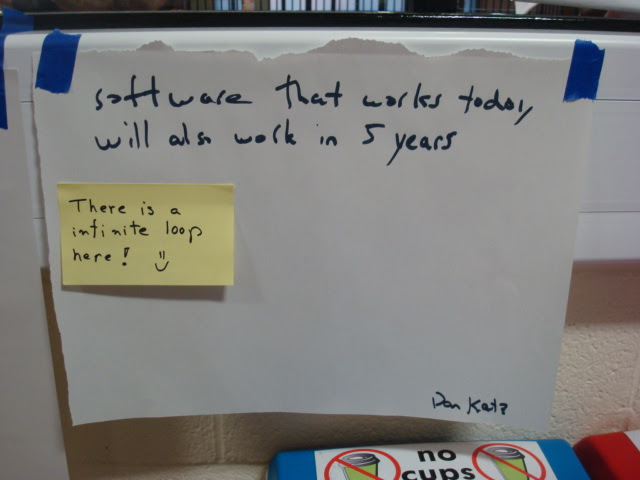 software that works today
will also work in 5 years
There is a
infinite loop
here! :)
Dan Katz
no
cups